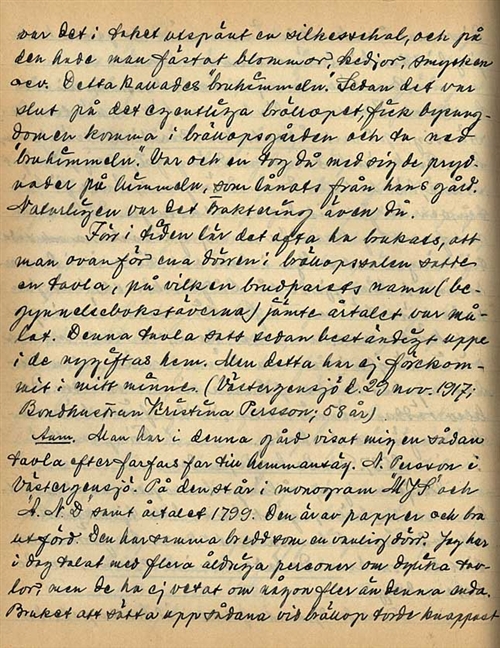 var det i taket utspänt en silkesschal, och på
den hade man fästat blommor, kedjor, smycken
osv. Detta kallades "bruhimmeln". Sedan det var
slut på det egentliga bröllopet, fick byung-
domen komma i bröllopsgården och ta ned
"bruhimmeln". Var och en tog då med sig de pryd-
nader på himmeln, som lånats från hans gård.
Naturligen var det traktering även då.
Förr i tiden lär det ofta ha brukats, att
man ovanför ena dörren i bröllopssalen satte
en tavla, på vilken brudparets namn (be-
gynnelsebokstäverna) jämte årtalet var må-
lat. Denna tavla satt sedan beständigt uppe
i de nygiftas hem. Men detta har ej förekom-
mit i mitt minne. (Västergensjö d. 29 nov. 1917;
Bondhustrun Kristina Persson; 58 år)
Anm. Man har i denna gård visat mig en sådan
tavla efter farfars far till hemmansäg. N. Persson i
Västergensjö. På den står i monogram "M J S" och
"A. N. D" samt årtalet 1799. Den är av papper och bra
utförd. Den har samma bredd som en vanlig dörr. Jag har
i dag talat med flera åldriga personer om dylika tav-
lor, men de ha ej vetat om någon fler än denna enda.
Bruket att sätta upp sådana vid bröllop torde knappast